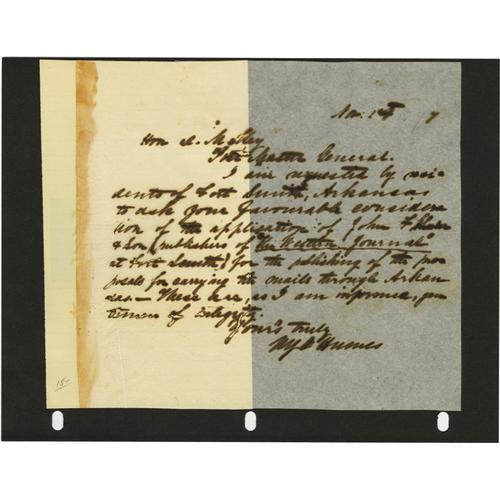 Nov: 14th 7
Hon D. M. Key
Post Master General.
I am requested by resi
dents of Fort Smith, Arkansas
to ask your favourable considera
tion of the application of John F
& Son (publishers of the Western Journal
at Fort Smith) for the publishing of the pro
posals for carrying the mails through Arkan
sas. – These are, as I am informed, gen
tlemen of integrity.
Yours truly
Humes
15-